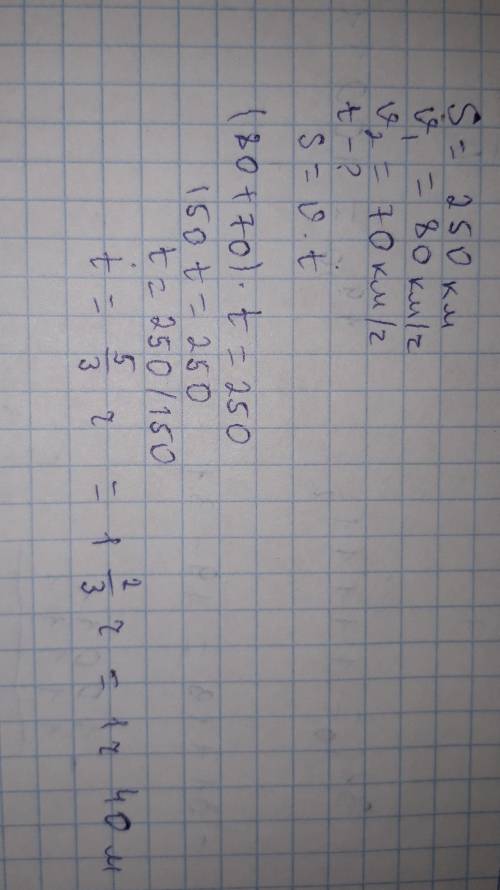 S = 250 км
v₁ = 80 км/ч
v₂ = 70 км/ч
t - ?
S = v · t
(80 + 70) · t = 250
150 t = 250
t = 250 / 150
t = 5/3 ч = 1 2/3 ч = 1ч 40 м